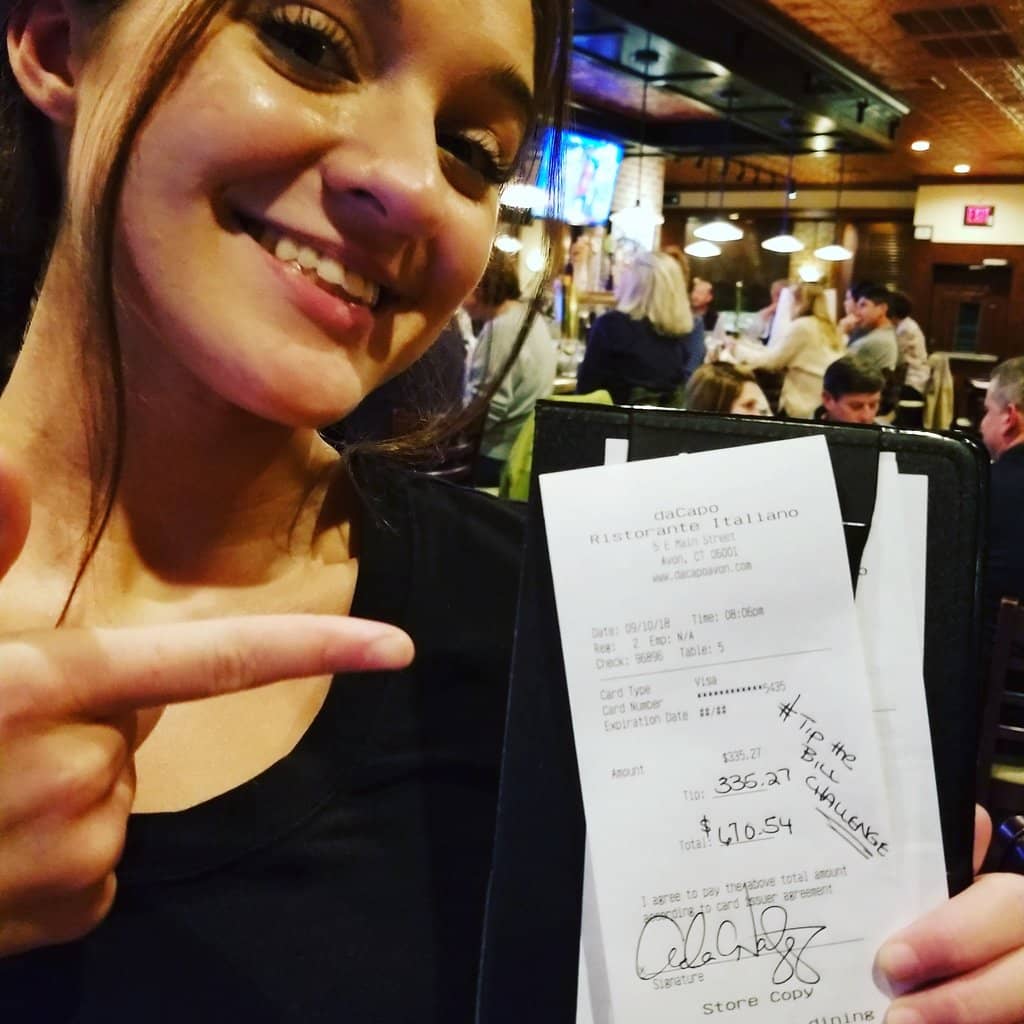 EXIT
daCapo
Ristorante Italiano
5 E Main Street
Avon, CT 06001
www.dacapoavon.com
Date: 09/10/18 Time: 08:06pm
Reg: 2 Emp: N/A
Check: 96896 Table: 5
Card Type Visa
Card Number ************5435
Expiration Date ##/##
Amount $335.27
Tip: 335.27
Total: $670.54
#TIP the
BILL
CHALLENGE
I agree to pay the above total amount
according to card issuer agreement
Signature
Store Copy
dining